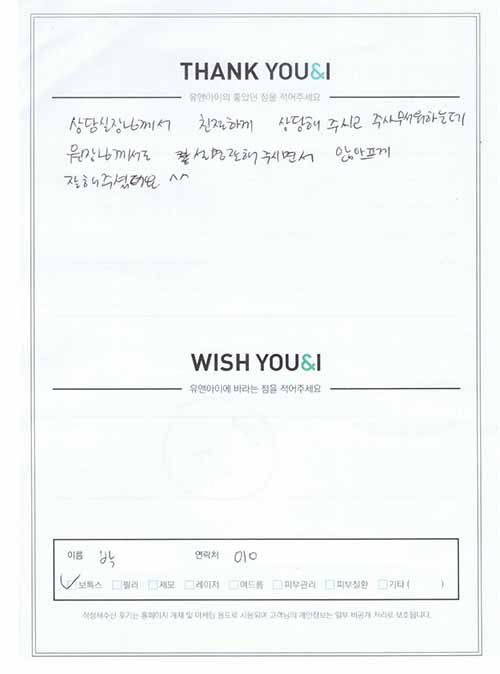 THANK YOU&I
유앤아이의 좋았던 점을 적어주세요
상담실장님께서 친절하게 상담해 주시고 주사무서워하는데
원장님께서도 잘 설명해 주시면서 않아프게
잘해주셨어요 ^^
WISH YOU&I
유앤아이에 바라는 점을 적어주세요
이름 박 연락처 010
보톡스 필러 제모 레이저 여드름 피부관리 피부질환 기타 ( )
작성해주신 후기는 홈페이지 게재 및 마케팅 용도로 사용되며 고객님의 개인정보는 일부 비공개 처리로 보호됩니다.